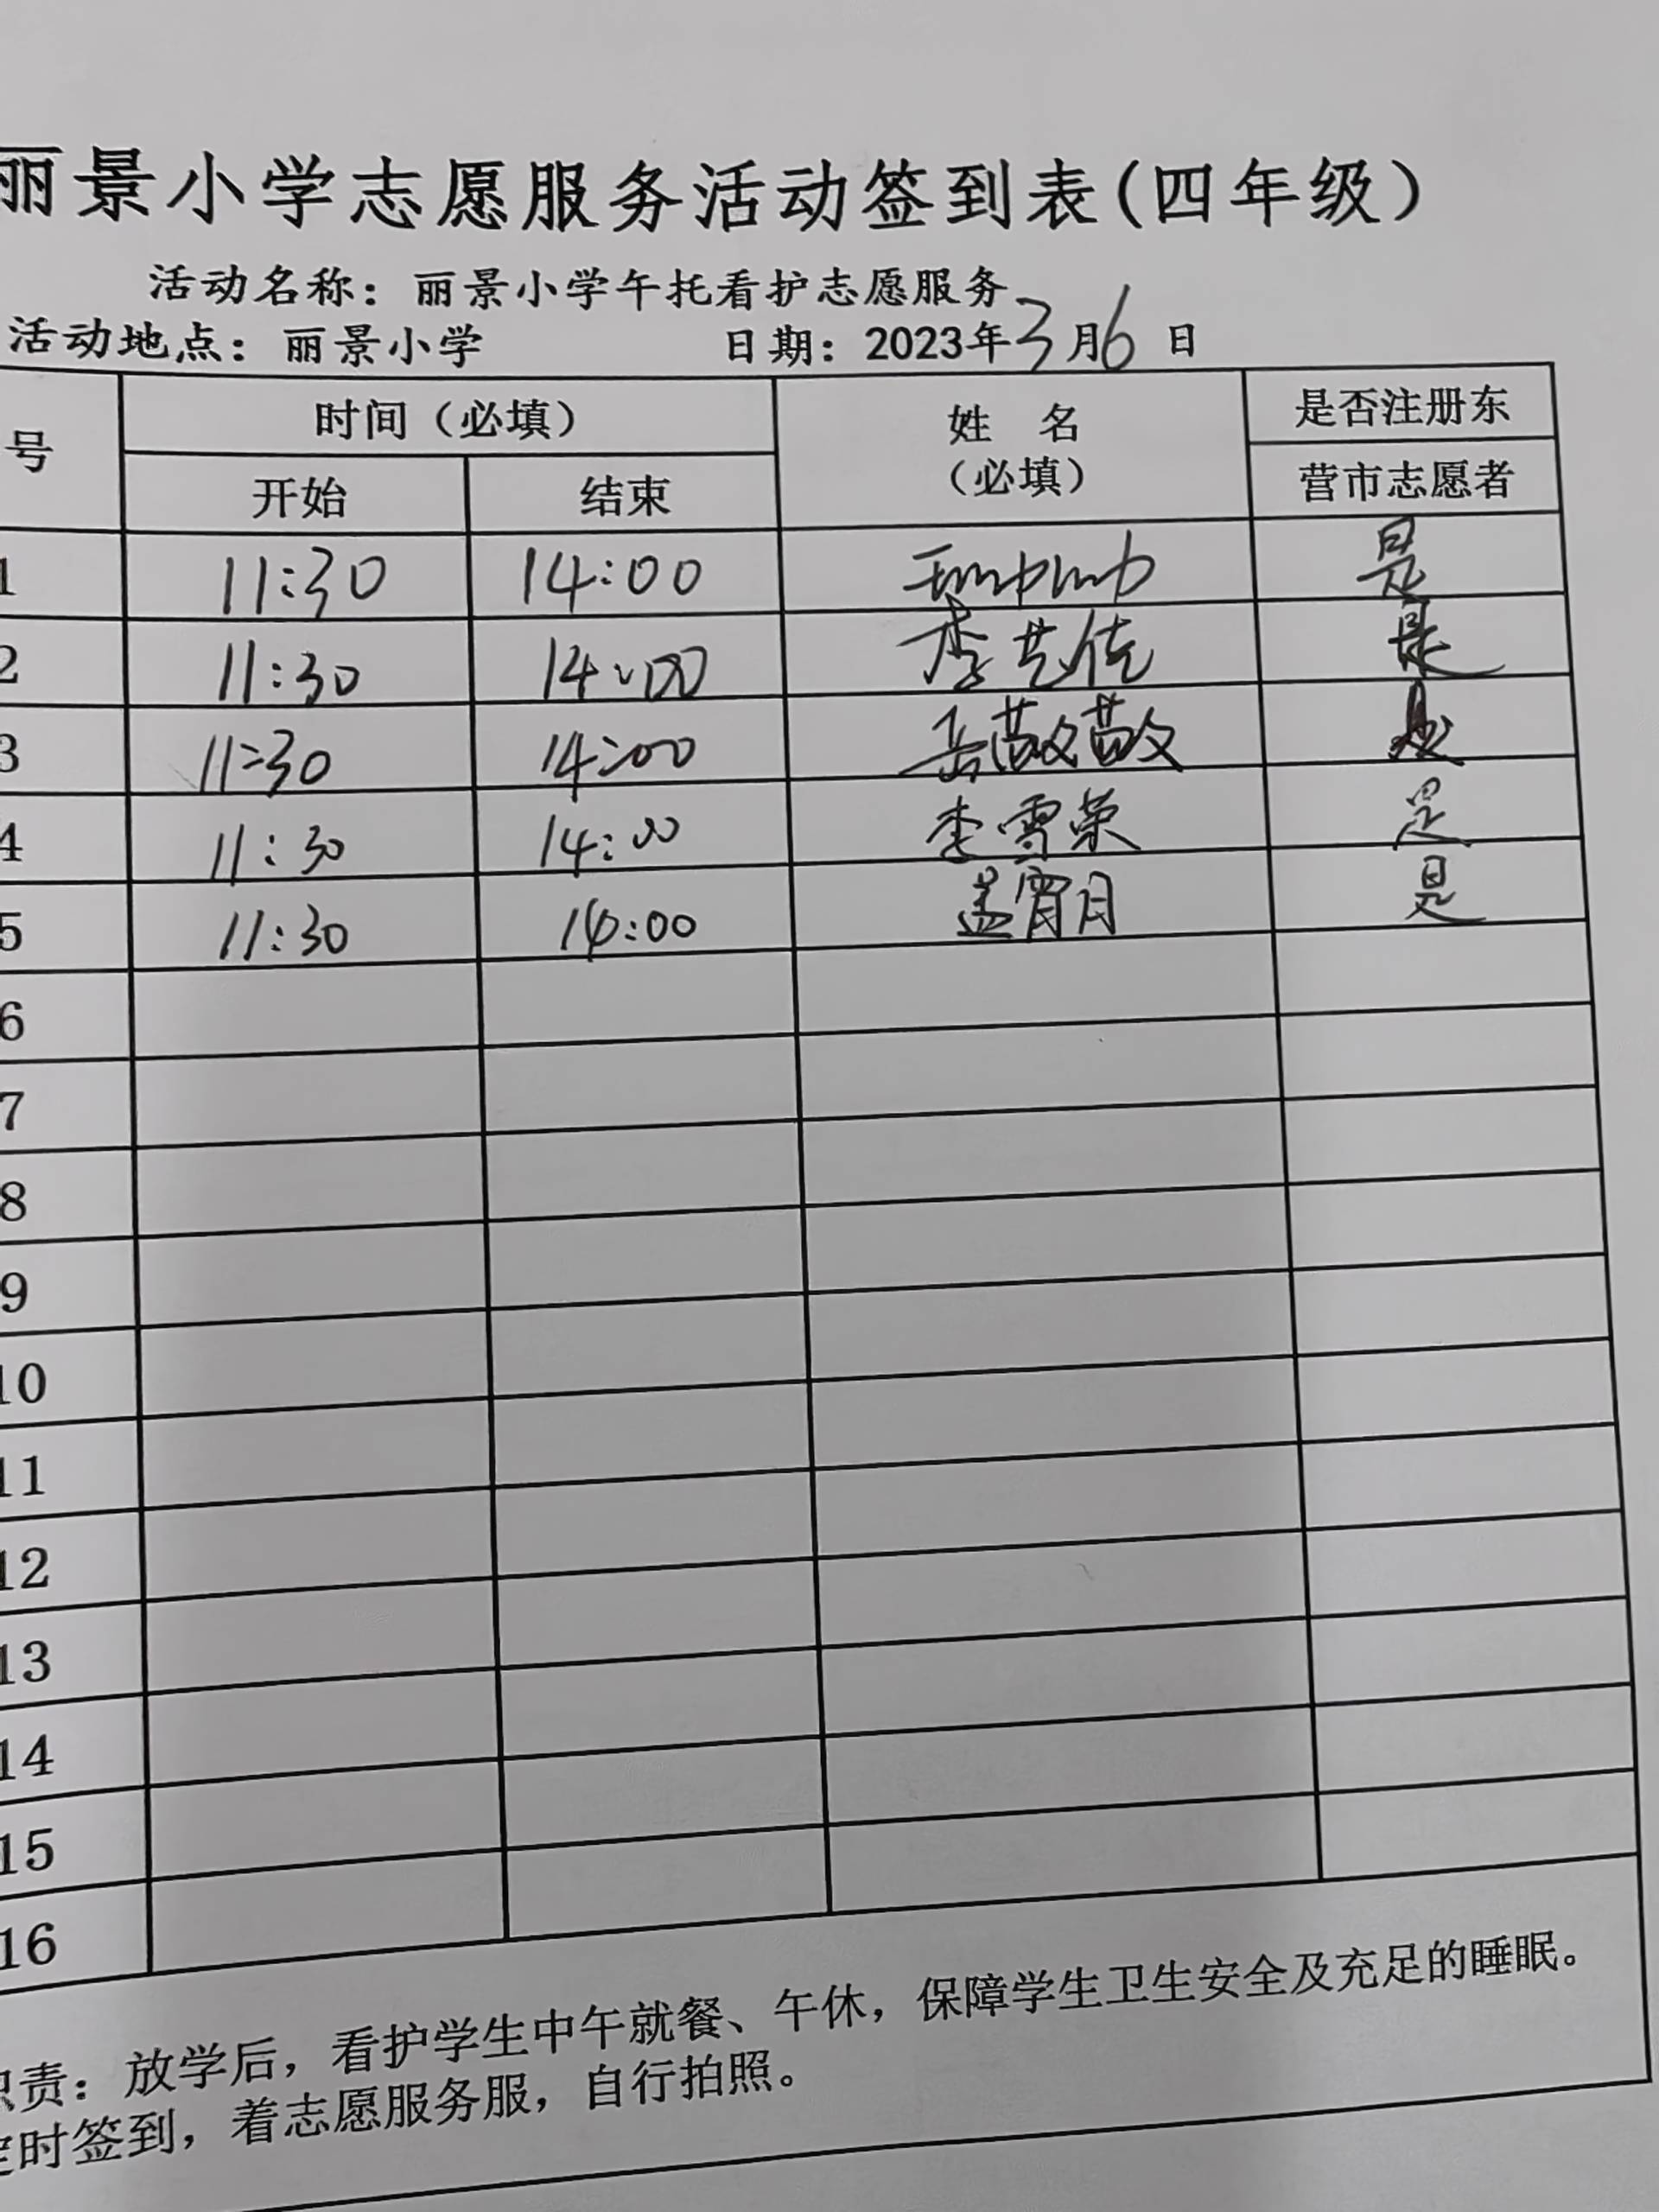 丽景小学志愿服务活动签到表(四年级)
活动名称：丽景小学午托看护志愿服务
活动地点：丽景小学 日期：2023年3月6日
号 时间（必填） 姓 名（必填） 是否注册东营市志愿者
开始 结束
1 11:30 14:00 是
2 11:30 14:00 李 佐 是
3 11:30 14:00 岳敬敬 是
4 11:30 14:00 李雪荣 是
5 11:30 14:00 孟宵月 是
6
7
8
9
10
11
12
13
14
15
16
职责：放学后，看护学生中午就餐、午休，保障学生卫生安全及充足的睡眠。
定时签到，着志愿服务服，自行拍照。